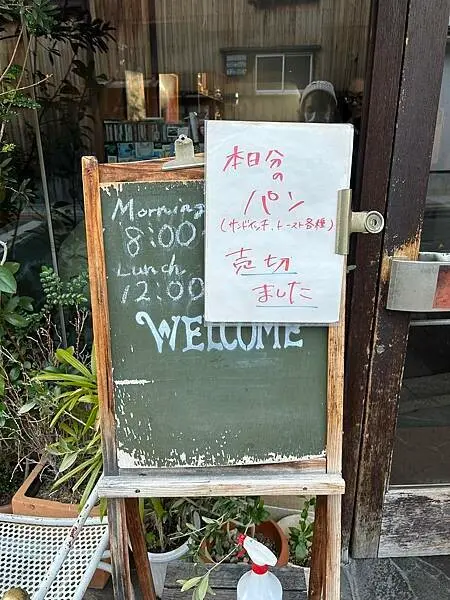 Morning
8:00
Lunch
12:00
WELCOME
本日分
の
パン
(サンドイッチ、トースト各種)
売切
ました